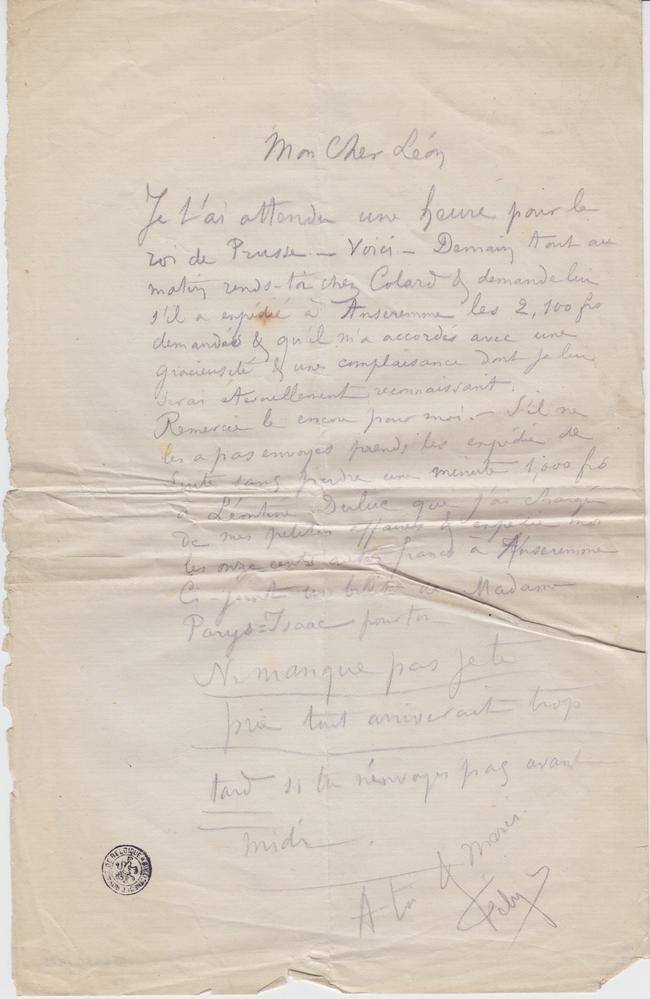 Mon Cher Léon
Je t'ai attendu une heure pour le
roi de Prusse — Voici — Demain tout au
matin rends-toi chez Colard & demande lui
s'il a expédié à Anseremme les 2,100 frs
demandés & qu'il m'a accordés avec une
gracieuseté & une complaisance dont je lui
serai éternellement reconnaissant.
Remercie le encore pour moi. — S'il ne
les a pas envoyés prends les expédie de
suite sans perdre une minute 1,000 frs
à Léontine Duluc que j'ai chargée
de mes petites affaires & expédie moi
les onze cents autres francs à Anseremme
Ci-joint un billet de Madame
Parys=Isaac pour toi
Ne manque pas je te
prie tout arriverait trop
tard si tu n'envoyes pas avant
midi.
A toi & merci
Fély